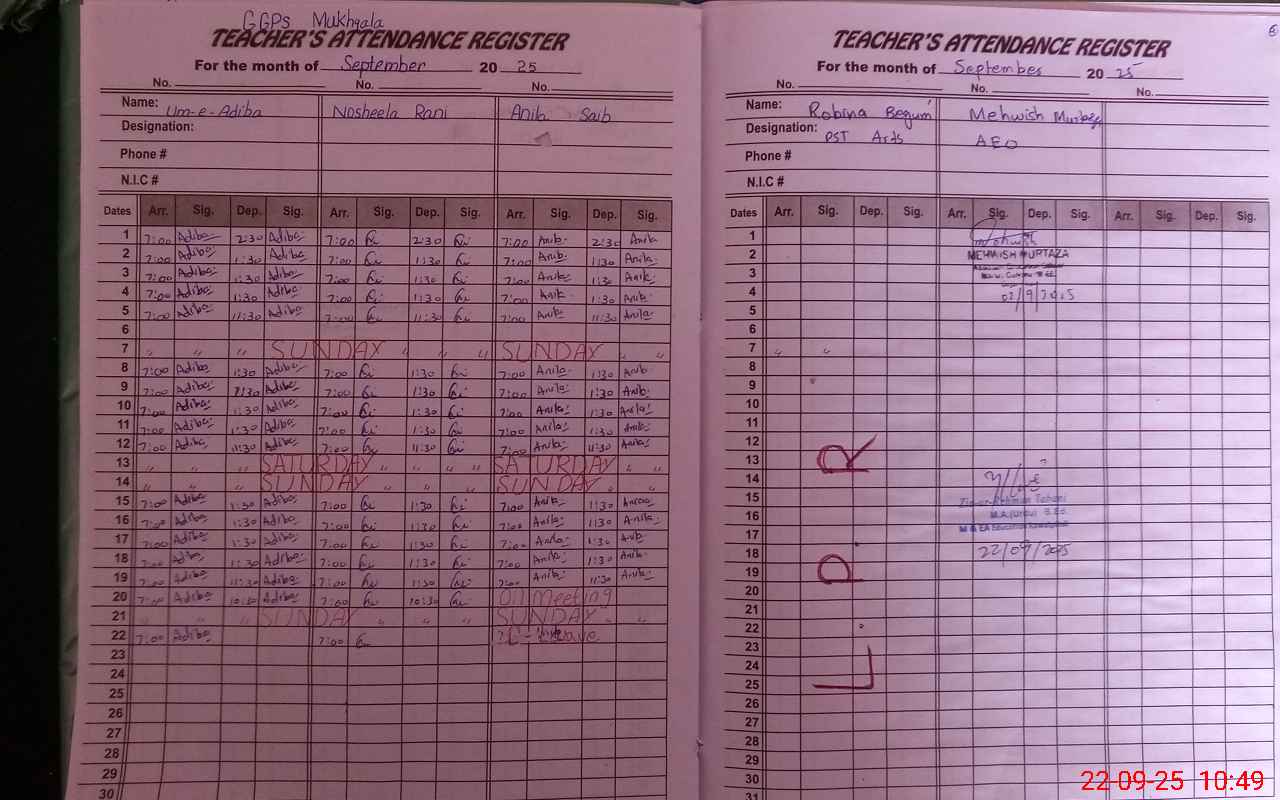 GGPS Mukhyala
TEACHER'S ATTENDANCE REGISTER
For the month of September 20 25
No. No. No.
Name: Um-e-Adiba Nosheela Rani Anila Saib
Designation:
Phone #
N.I.C #
Dates Arr. Sig. Dep. Sig. Arr. Sig. Dep. Sig. Arr. Sig. Dep. Sig.
1 7:00 Adiba 2:30 Adiba 7:00 2:30 7:00 Anila 2:30 Anila
2 7:00 Adiba 1:30 Adiba 7:00 1:30 7:00 Anila 1:30 Anila
3 7:00 Adiba 1:30 Adiba 7:00 1:30 7:00 Anila 1:30 Anila
4 7:00 Adiba 1:30 Adiba 7:00 1:30 7:00 Anila 1:30 Anila
5 7:00 Adiba 11:30 Adiba 7:00 11:30 7:00 Anila 11:30 Anila
6
7 " " " SUNDAY " " " SUNDAY " "
8 7:00 Adiba 1:30 Adiba 7:00 1:30 7:00 Anila 1:30 Anila
9 7:00 Adiba 1:30 Adiba 7:00 1:30 7:00 Anila 1:30 Anila
10 7:00 Adiba 1:30 Adiba 7:00 1:30 7:00 Anila 1:30 Anila
11 7:00 Adiba 1:30 Adiba 7:00 1:30 7:00 Anila 1:30 Anila
12 7:00 Adiba 11:30 Adiba 7:00 11:30 7:00 Anila 11:30 Anila
13 " " " SATURDAY " " " SATURDAY " "
14 " " " SUNDAY " " " SUNDAY " "
15 7:00 Adiba 1:30 Adiba 7:00 1:30 7:00 Anila 1:30
16 7:00 Adiba 1:30 Adiba 7:00 1:30 7:00 Anila 1:30 Anila
17 7:00 Adiba 1:30 Adiba 7:00 1:30 7:00 Anila 1:30 Anila
18 7:00 Adiba 1:30 Adiba 7:00 1:30 7:00 Anila 1:30 Anila
19 7:00 Adiba 11:30 Adiba 7:00 11:30 7:00 Anila 11:30 Anila
20 7:00 Adiba 10:30 Adiba 7:00 10:30 Meeting
21 " " " SUNDAY " " " SUNDAY " "
22 7:00 Adiba 7:00 Leave
23
24
25
26
27
28
29
30
TEACHER'S ATTENDANCE REGISTER
For the month of September 20 25
No. No. No.
Name: Robina Begum Mehwish Murtaza
Designation: PST Arts AEO
Phone #
N.I.C #
Dates Arr. Sig. Dep. Sig. Arr. Sig. Dep. Sig. Arr. Sig. Dep. Sig.
1 Mehwish
2 MEHWISH MURTAZA
3
4 02/9/2025
5
6
7 " "
8
9
10
11
12
13
14
15
16 M.A B.Ed
17
18 22/09/2025
19
20
21
22
23
24
25
26
27
28
29
30
31
L.P.R
22-09-25 10:49